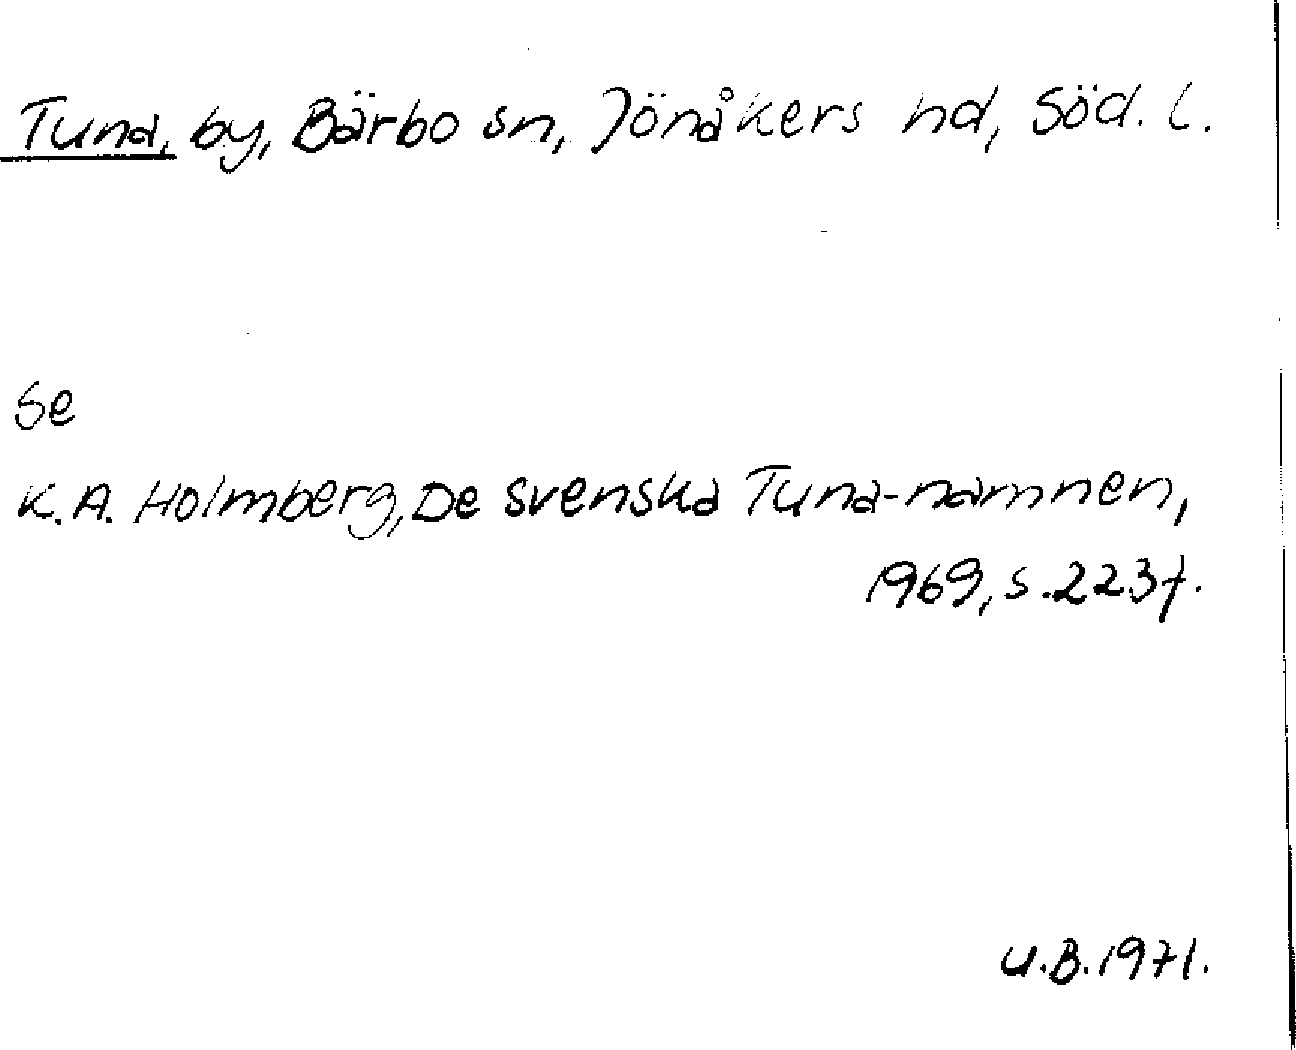 Tuna, by, Bärbo sn, Jönåkers hd, Söd. l.
Se
K.A. Holmberg, De svenska Tuna-namnen,
1969, s. 223f.
U.B. 1971.